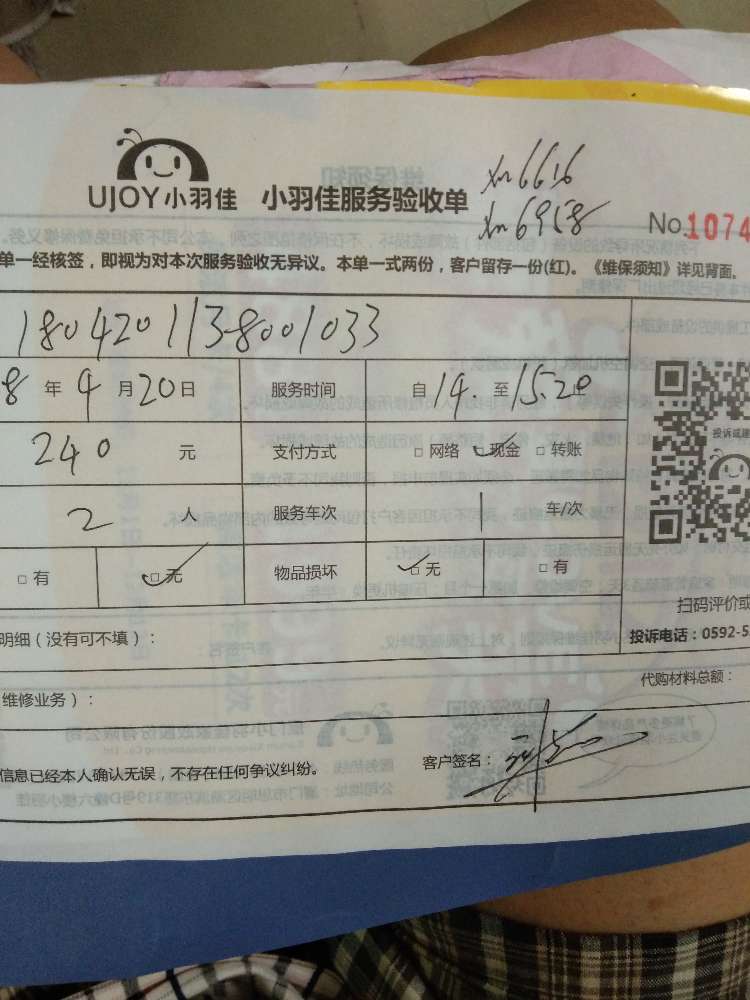 UJOY小羽佳 小羽佳服务验收单
xn6616
xn6958
No.1074
单一经核签，即视为对本次服务验收无异议。本单一式两份，客户留存一份(红)。《维保须知》详见背面。
1804201138001033
8 年 4 月 20 日 服务时间 自 14. 至 15.20 止
240 元 支付方式 □ 网络 ✓现金 □ 转账
投诉或建
2 人 服务车次 1 车/次
□ 有 ✓□ 无 物品损坏 ✓□ 无 □ 有
扫码评价或
明细（没有可不填）：
投诉电话：0592-5
维修业务）：
代购材料总额：
信息已经本人确认无误，不存在任何争议纠纷。
客户签名：